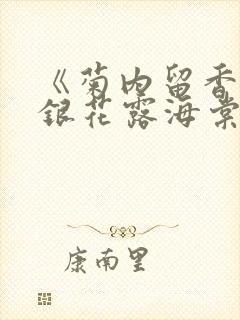 《菊内留香
银花露海棠
康南里